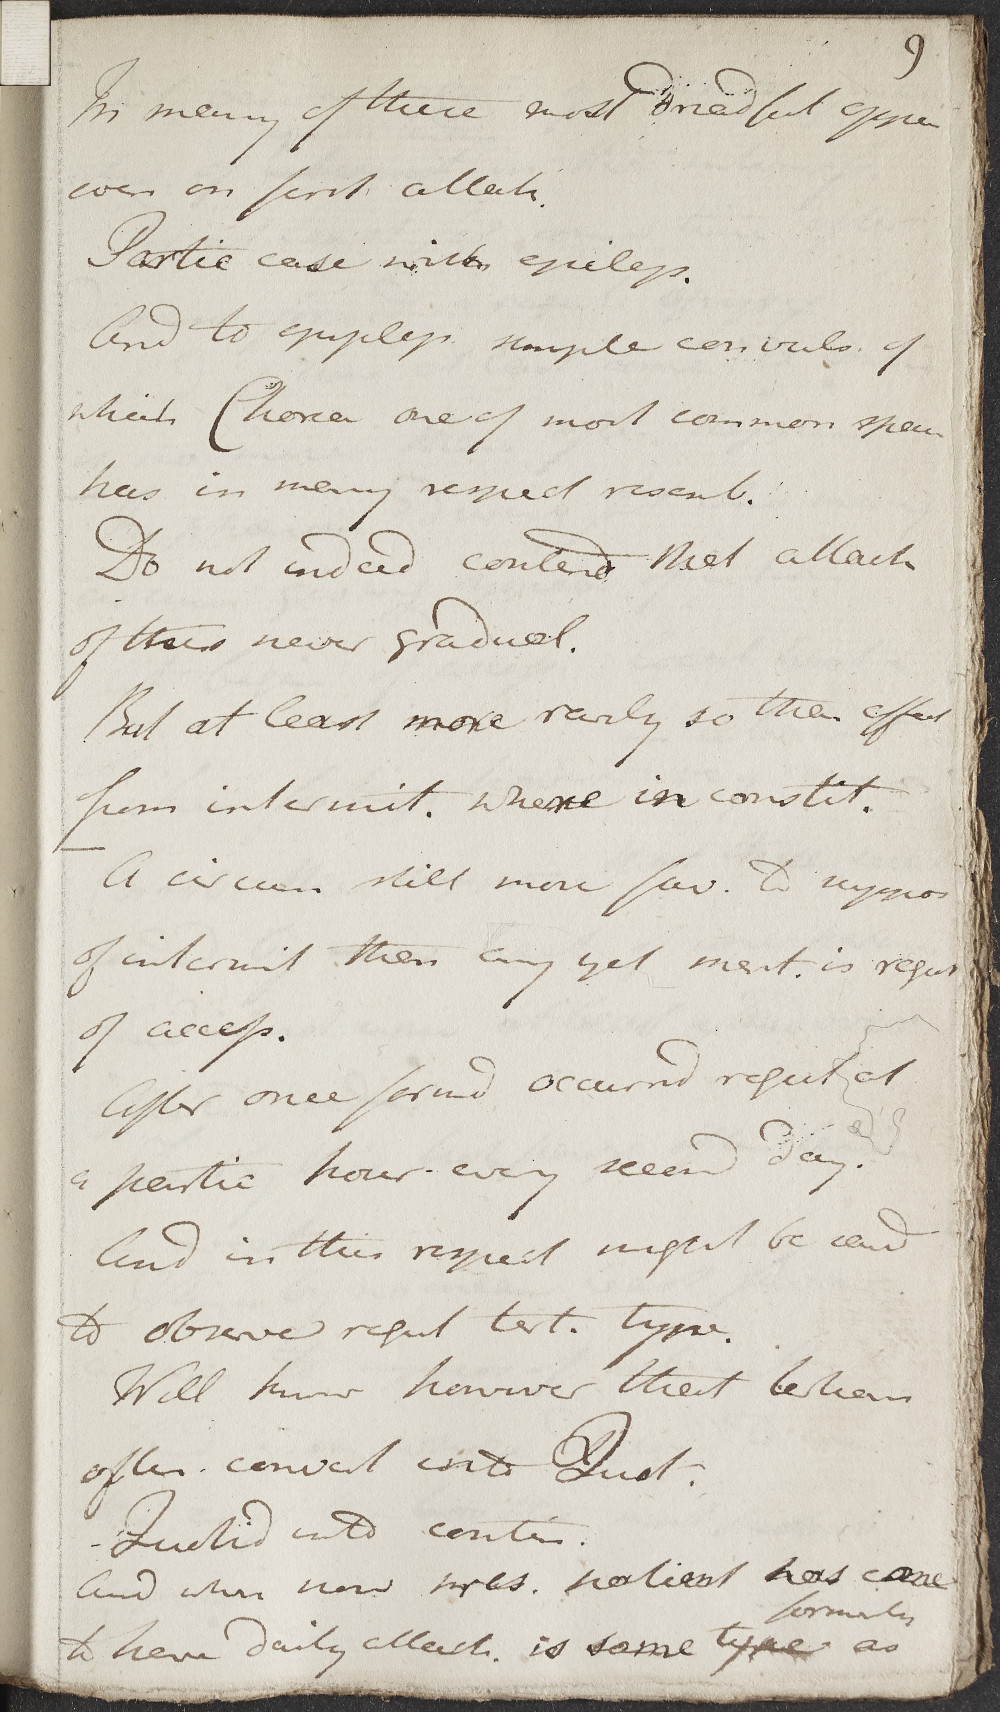 9
In many of these most dreadful appea
even on first attack.
Partic case with epileps.
And to epyleps simple convuls. of
which Chorea one of most common spec
has in many respect resemb.
Do not indeed contend that attack
of this never gradual.
But at least more rarely so than effect
from intermit. where in constit.
A circum still more fav. to suppos
of intermit then any yet ment. is regul
of access.
After once formd occurrd regul at
a partic hour every second day.
And in this respect might be said
to observe regul tert. type.
Well know however that tertian
often convert into Quot.
- Quotid into contin.
And when now pres. patient has come
formerly
to have daily attack. is some type as